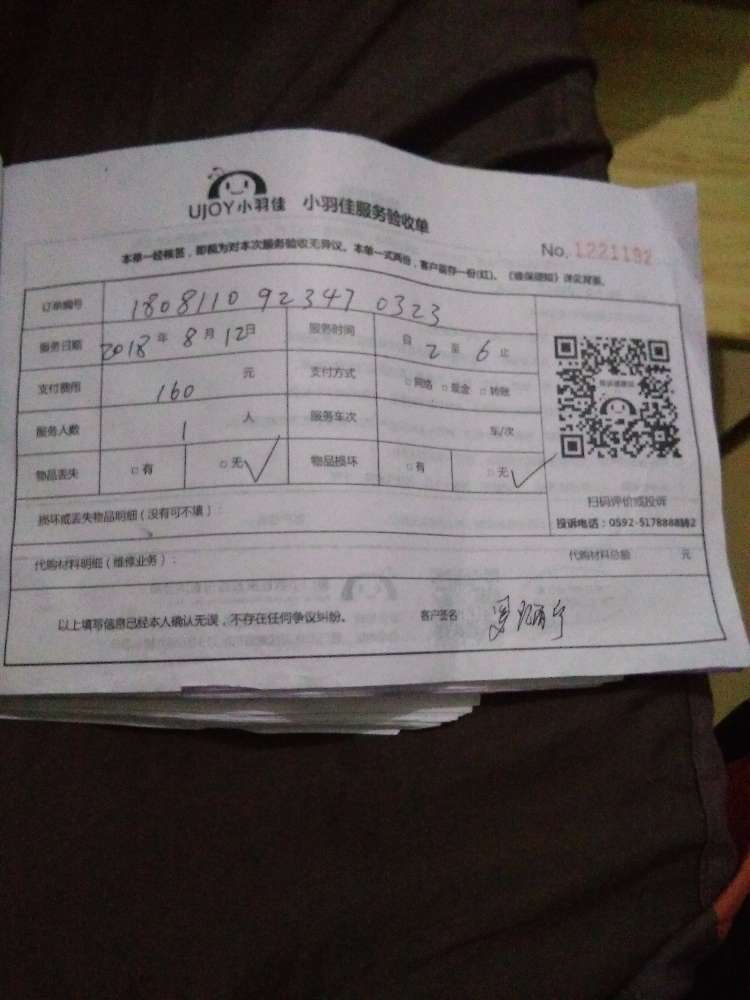 UJOY小羽佳 小羽佳服务验收单
No. 1221192
本单一经签签，即视为对本次服务验收无异议。本单一式两份，客户留存一份(红)。《维保须知》详见背面。
订单编号 1808110923470323
服务日期 2018年8月12日 服务时间 自2至6止
支付费用 160元 支付方式 □网络 □现金 □转账
服务人数 1人 服务车次 车/次
物品丢失 □有 □无√ 物品损坏 □有 □无√
扫码评价或投诉
投诉电话：0592-5178888转2
损坏或丢失物品明细（没有可不填）：
代购材料明细（维修业务）： 代购材料总额 元
以上填写信息已经本人确认无误，不存在任何争议纠纷。 客户签名